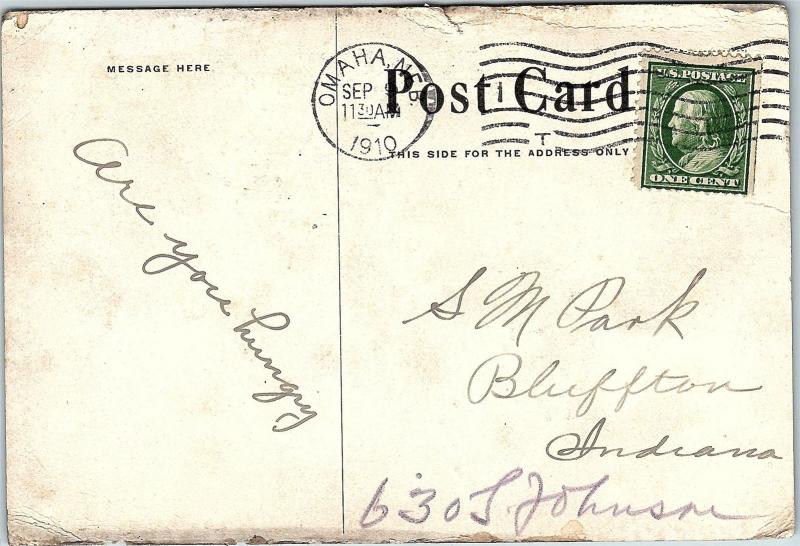 MESSAGE HERE
Are you hungry
OMAHA, NEB
SEP 9
1130AM
1910
1
T
Post Card
THIS SIDE FOR THE ADDRESS ONLY
U.S. POSTAGE
ONE CENT
S M Park
Bluffton
Indiana
630 S Johnson